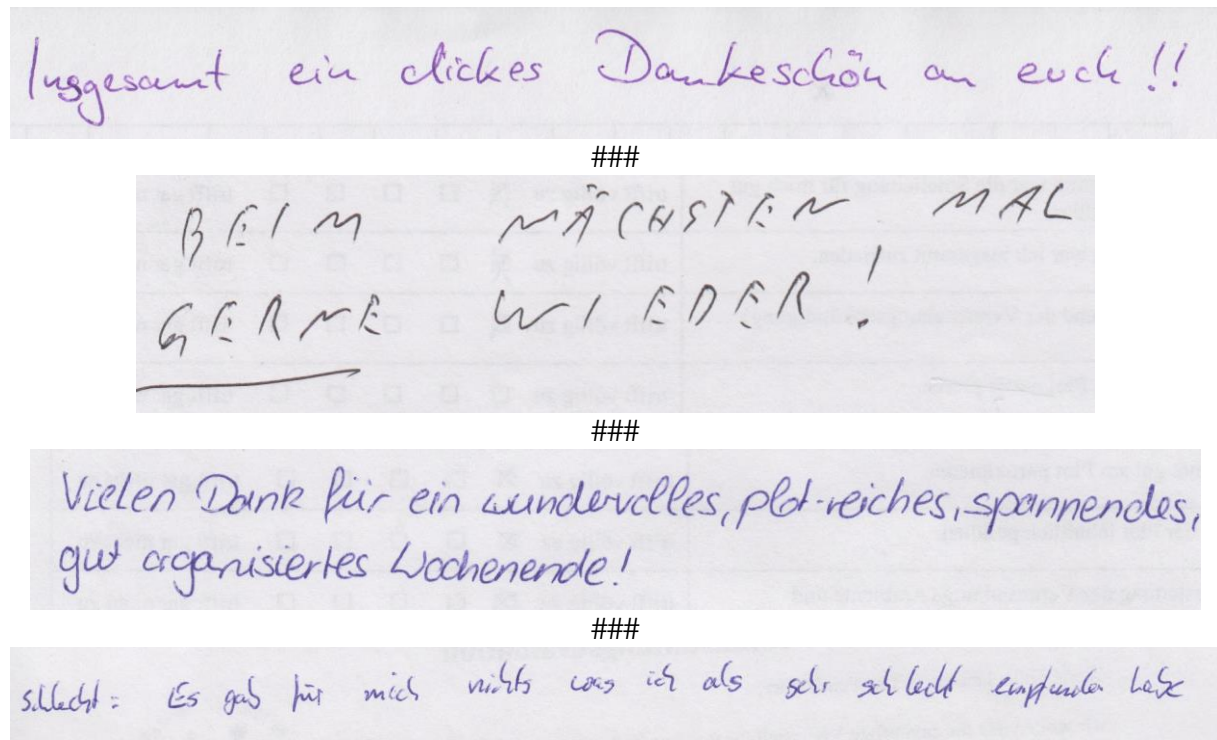 Insgesamt ein dickes Dankeschön an euch!!
###
BEIM NÄCHSTEN MAL
GERNE WIEDER!
###
Vielen Dank für ein wundervolles, plot-reiches, spannendes,
gut organisiertes Wochenende!
###
schlecht: Es gab für mich nichts was ich als sehr schlecht empfunden habe